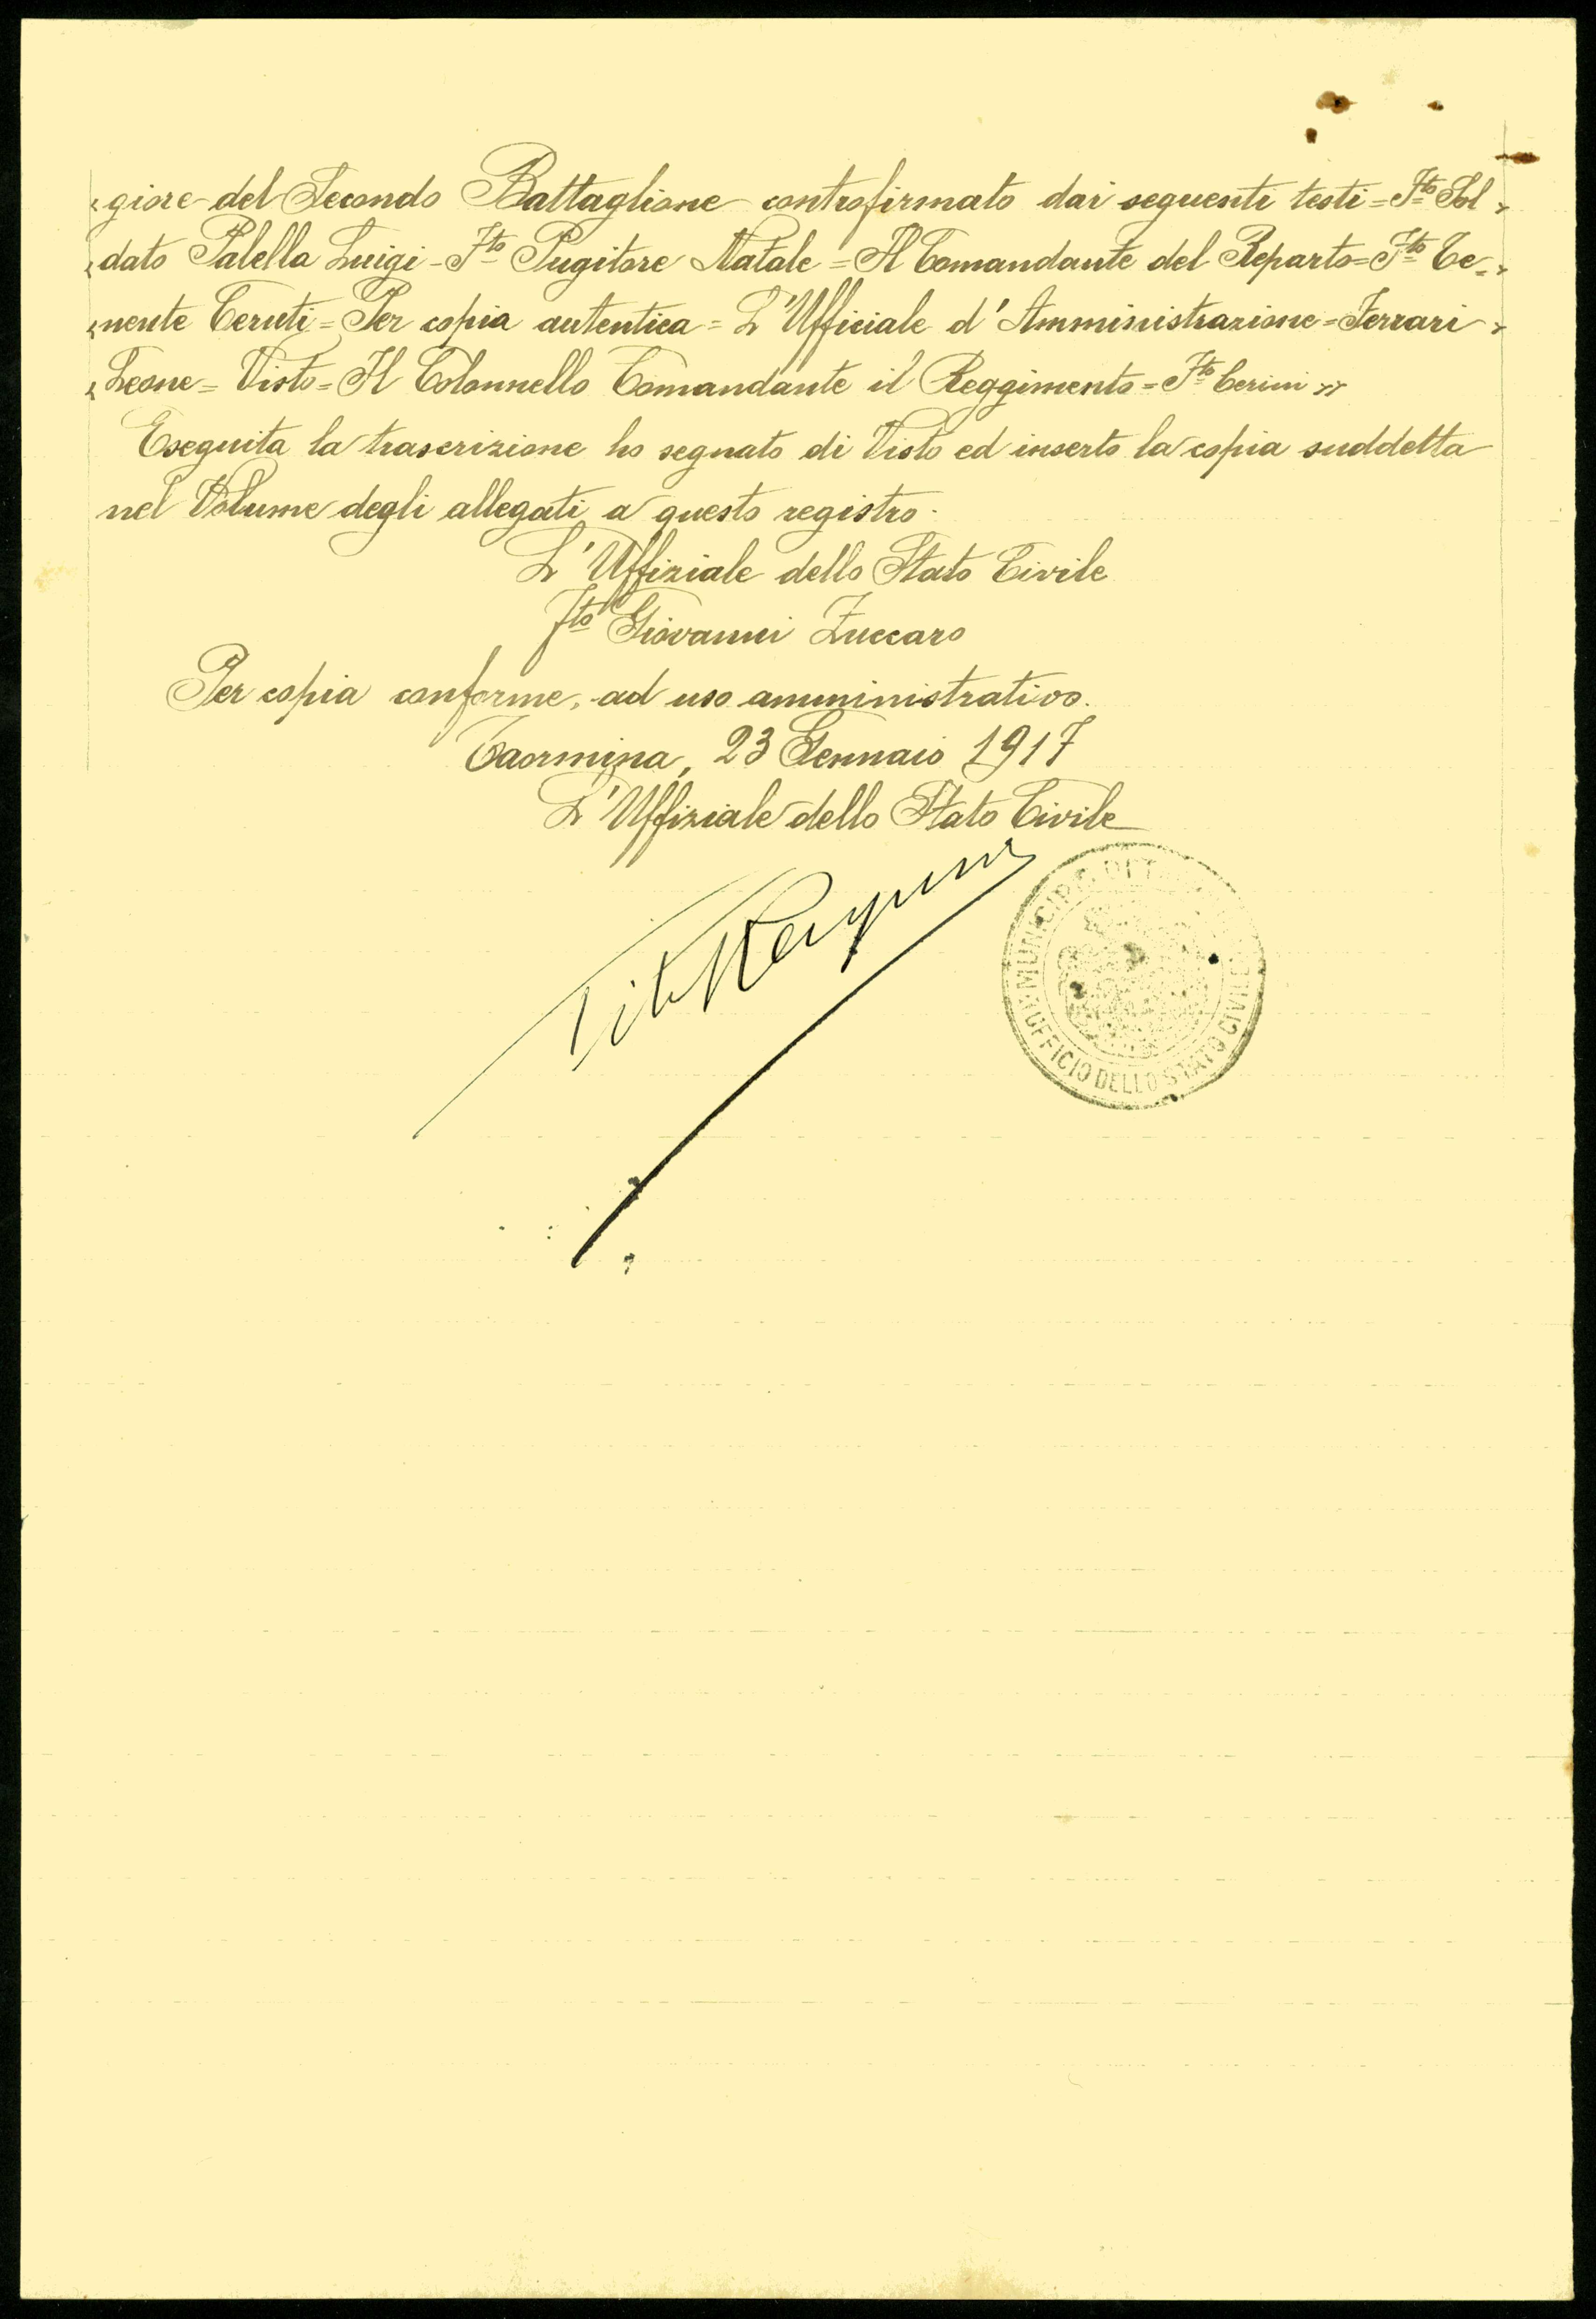 „giore del Secondo Battaglione controfirmato dai seguenti testi = Fto Sol„
„dato Palella Luigi - Fto Pugitore Natale = Il Comandante del Reparto = Fto Te=„
„nente Ceruti = Per copia autentica = L'Ufficiale d'Amministrazione = Ferrari„
„Leone = Visto = Il Colonnello Comandante il Reggimento = Fto Cerini »
Eseguita la trascrizione ho segnato di Visto ed inserto la copia suddetta
nel Volume degli allegati a questo registro.
L'Uffiziale dello Stato Civile
Fto Giovanni Zuccaro
Per copia conforme, ad uso amministrativo.
Taormina, 23 Gennaio 1917
L'Uffiziale dello Stato Civile
MUNICIPIO DI
UFFICIO DELLO STATO CIVILE